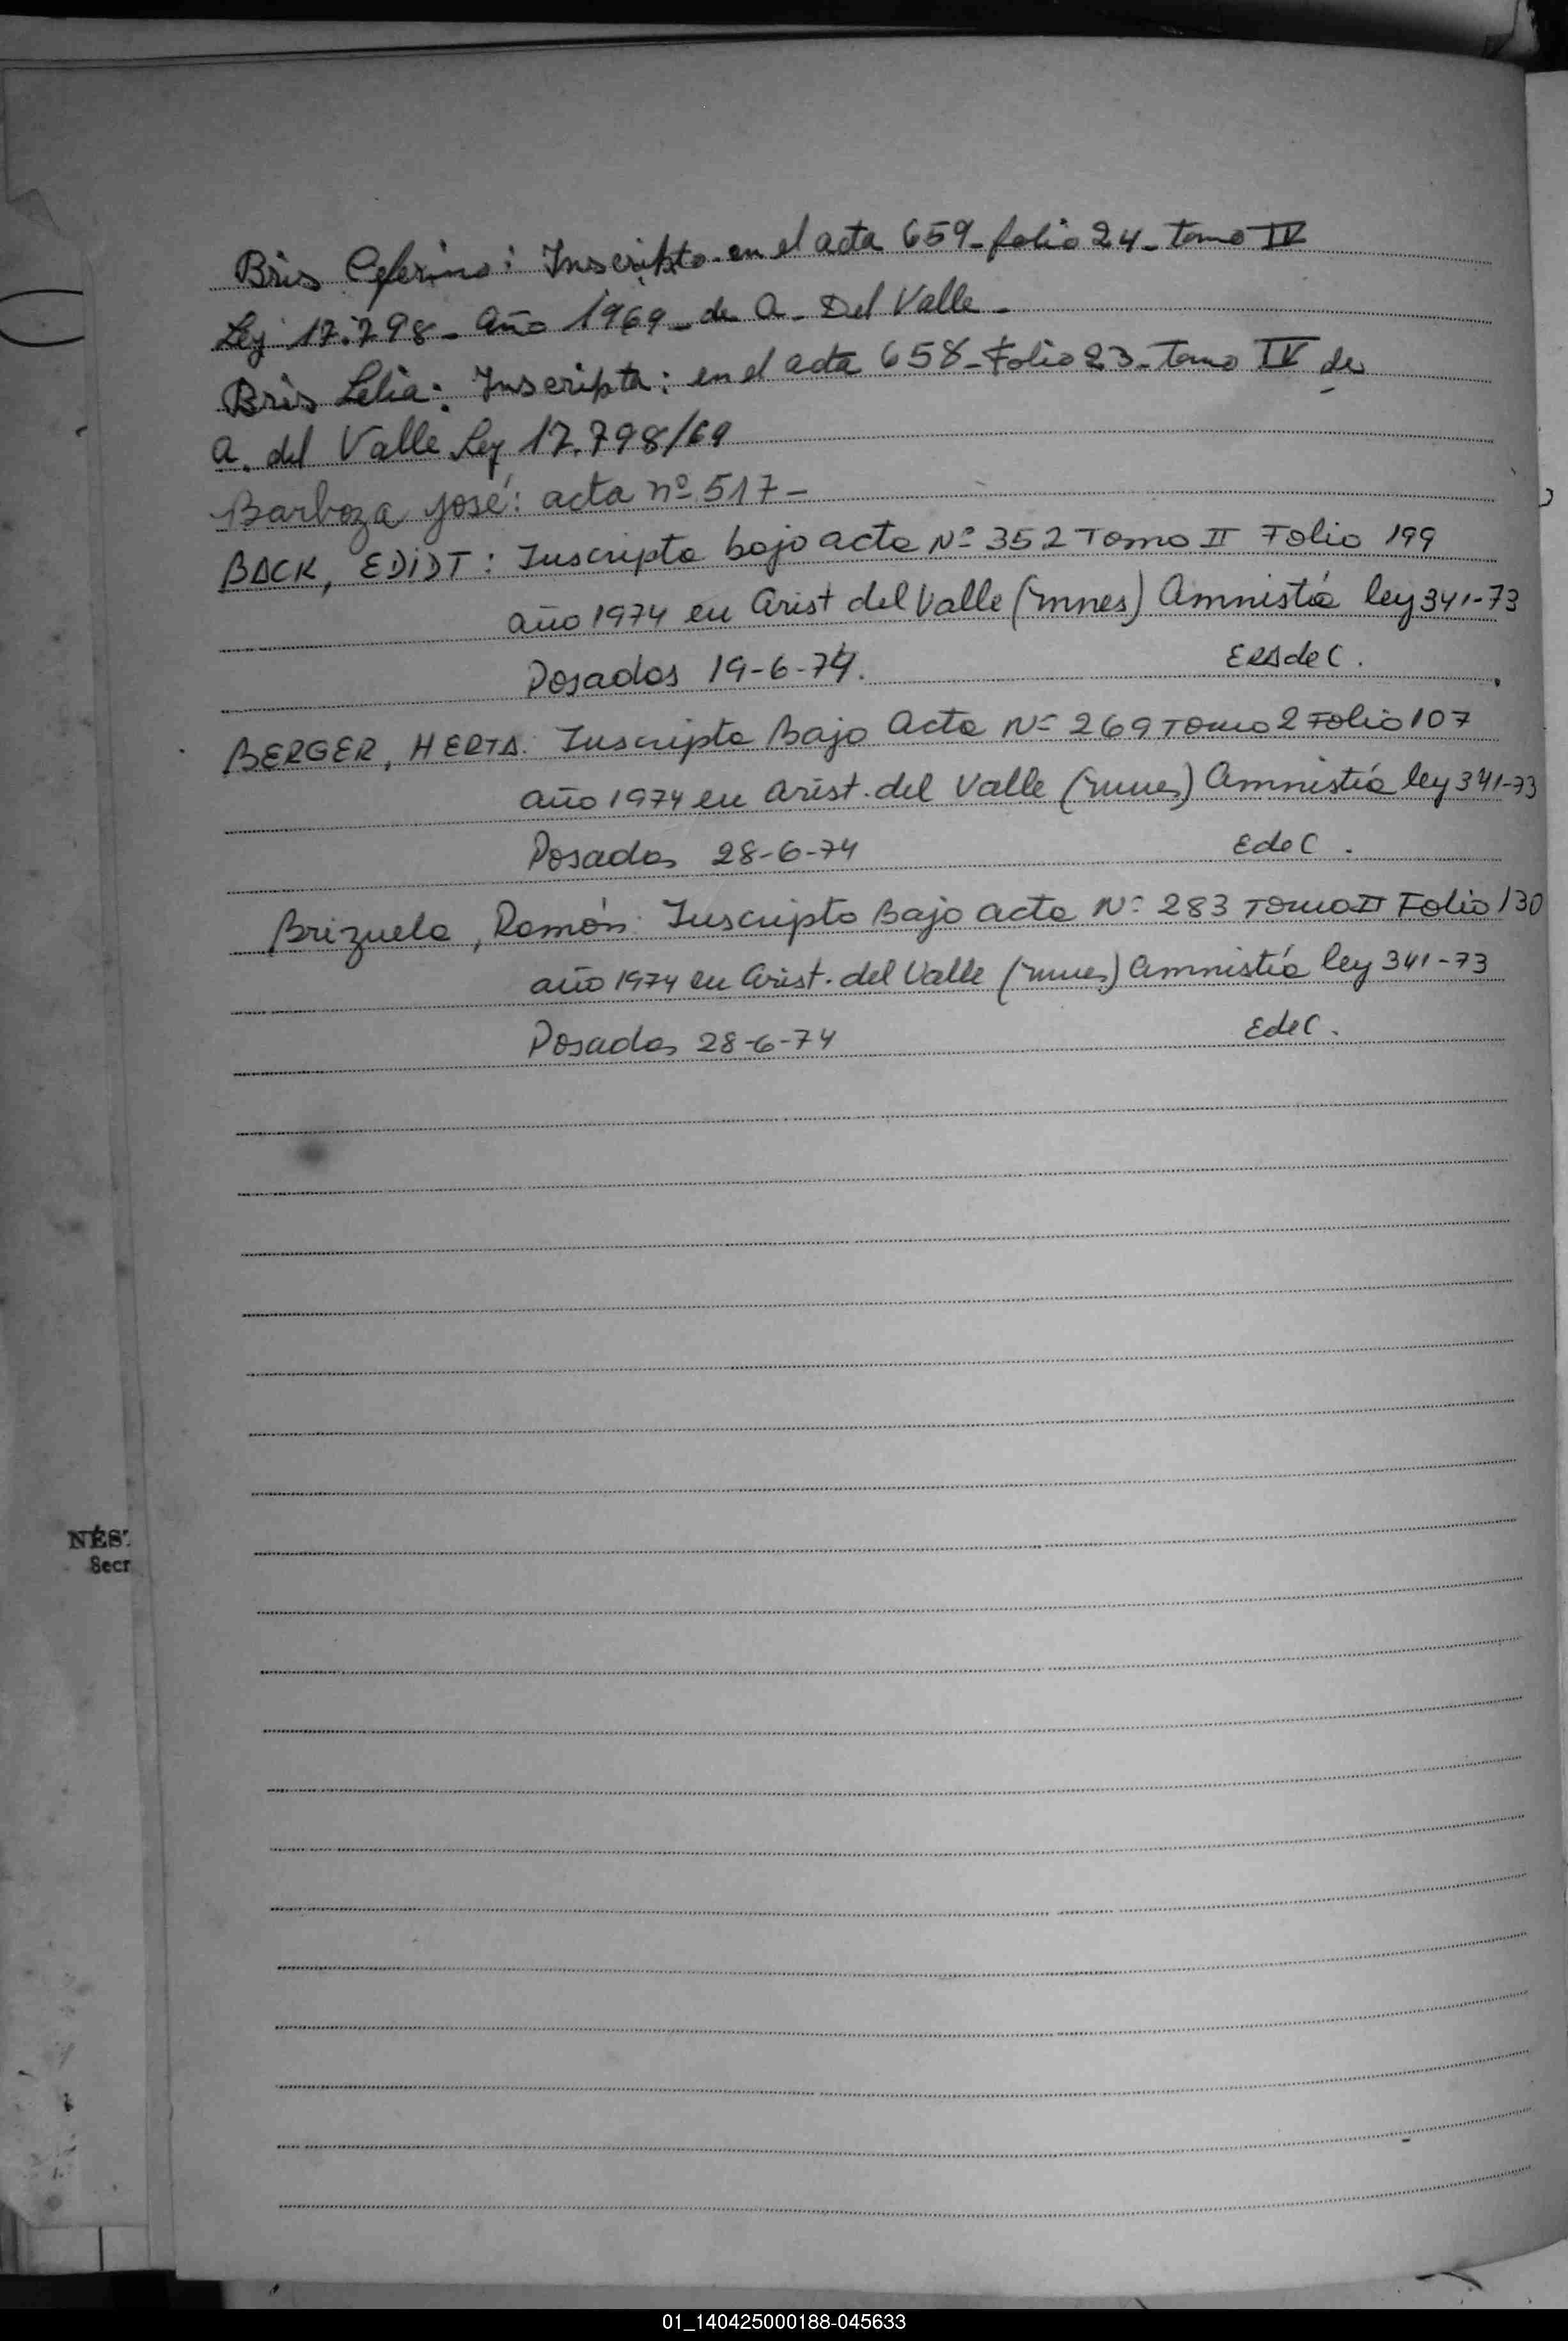 Bris Ceferino: Inscripto en el acta 659 - folio 24 - tomo IV
Ley 17.798 - año 1969 - de A. Del Valle -
Bris Lelia: Inscripta: en el acta 658 - Folio 23 - Tomo IV de
A. del Valle Ley 17.798/69
Barboza José: acta nº 517 -
BACK, EDIDT: Inscripta bajo acta Nº 352 Tomo II Folio 199
año 1974 en Arist del Valle (mnes) Amnistía ley 341-73
Posadas 19-6-74. ERAdeC.
BERGER, HERTA. Inscripta Bajo Acta Nº 269 Tomo 2 Folio 107
año 1974 en Arist. del Valle (mnes) Amnistía ley 341-73
Posadas 28-6-74 EdeC.
Brizuela, Ramón. Inscripto Bajo acta Nº 283 Tomo II Folio 130
año 1974 en Arist. del Valle (mnes) Amnistía ley 341-73
Posadas 28-6-74 EdeC.
NÉS
Secr
01_140425000188-045633